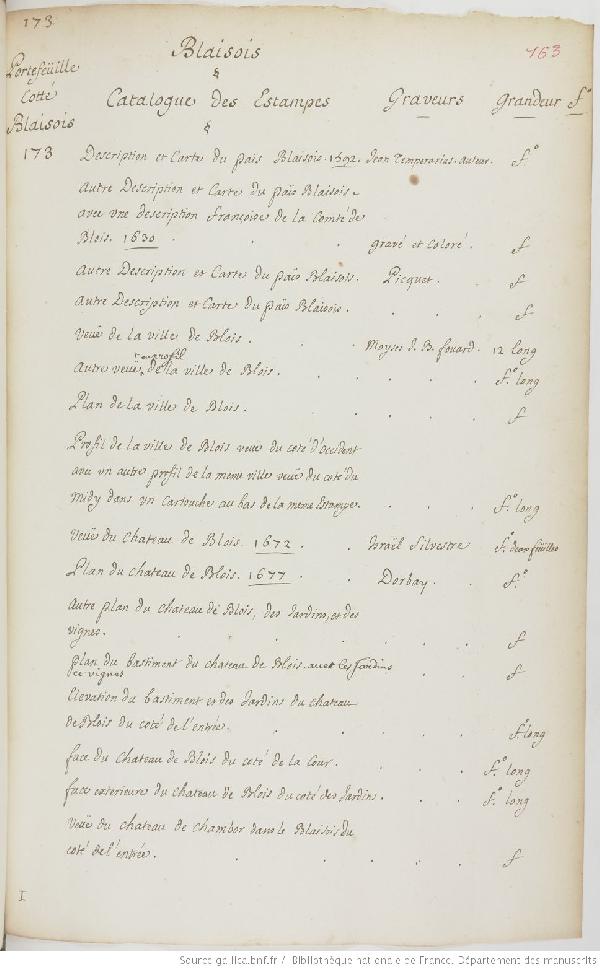 173
163
Blaisois
Portefeüille
Cotté
Blaisois
Catalogue des Estampes Graveurs Grandeur f°
173
Description et Carte du païs Blaisois. 1592. Jean Temporarius. auteur. f°
Autre Description et Carte du païs Blaisois.
avec vne description françoise de la Comté de
Blois. 1630 . . . gravé et Coloré. f
Autre Description et Carte du païs Blaisois. Picquet. f
Autre Description et Carte du païs Blaisois. . . . . f
Veüe de la ville de Blois. . Moyses J. B. fouard. 12 long
en profil
Autre veüe de la ville de Blois. . . . . f° long
Plan de la ville de Blois. . . . . f
Profil de la ville de Blois veüe du coté d'occident
avec vn autre profil de la meme ville veüe du coté du
midy dans vn Cartouche au bas de la meme Estampe. . . . f° long
Veüe du Chateau de Blois. 1672. . . Israël Silvestre f° deux feüilles
Plan du chateau de Blois. 1677 . . Dorbay. . f°
Autre plan du chateau de Blois, des Jardins, et des
vignes. . . . . . . f
plan du bastiment du chateau de Blois avec les Jardins . . f
des vignes
Elevation du bastiment et des Jardins du chateau
de Blois du coté de l'entrée. . . . . f° long
face du chateau de Blois du coté de la Cour. . . . f° long
face exterieure du chateau de Blois du coté des Jardins. . . f° long
Veüe du chateau de chambor dans le Blaisois du
coté de l'entrée. . . . . . f
I
Source gallica.bnf.fr / Bibliothèque nationale de France. Département des manuscrits